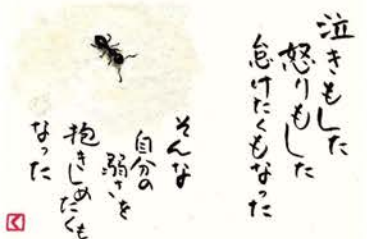 泣きもした
怒りもした
怠けたくもなった
そんな
自分の
溺さを
抱きしめたくも
なった
く